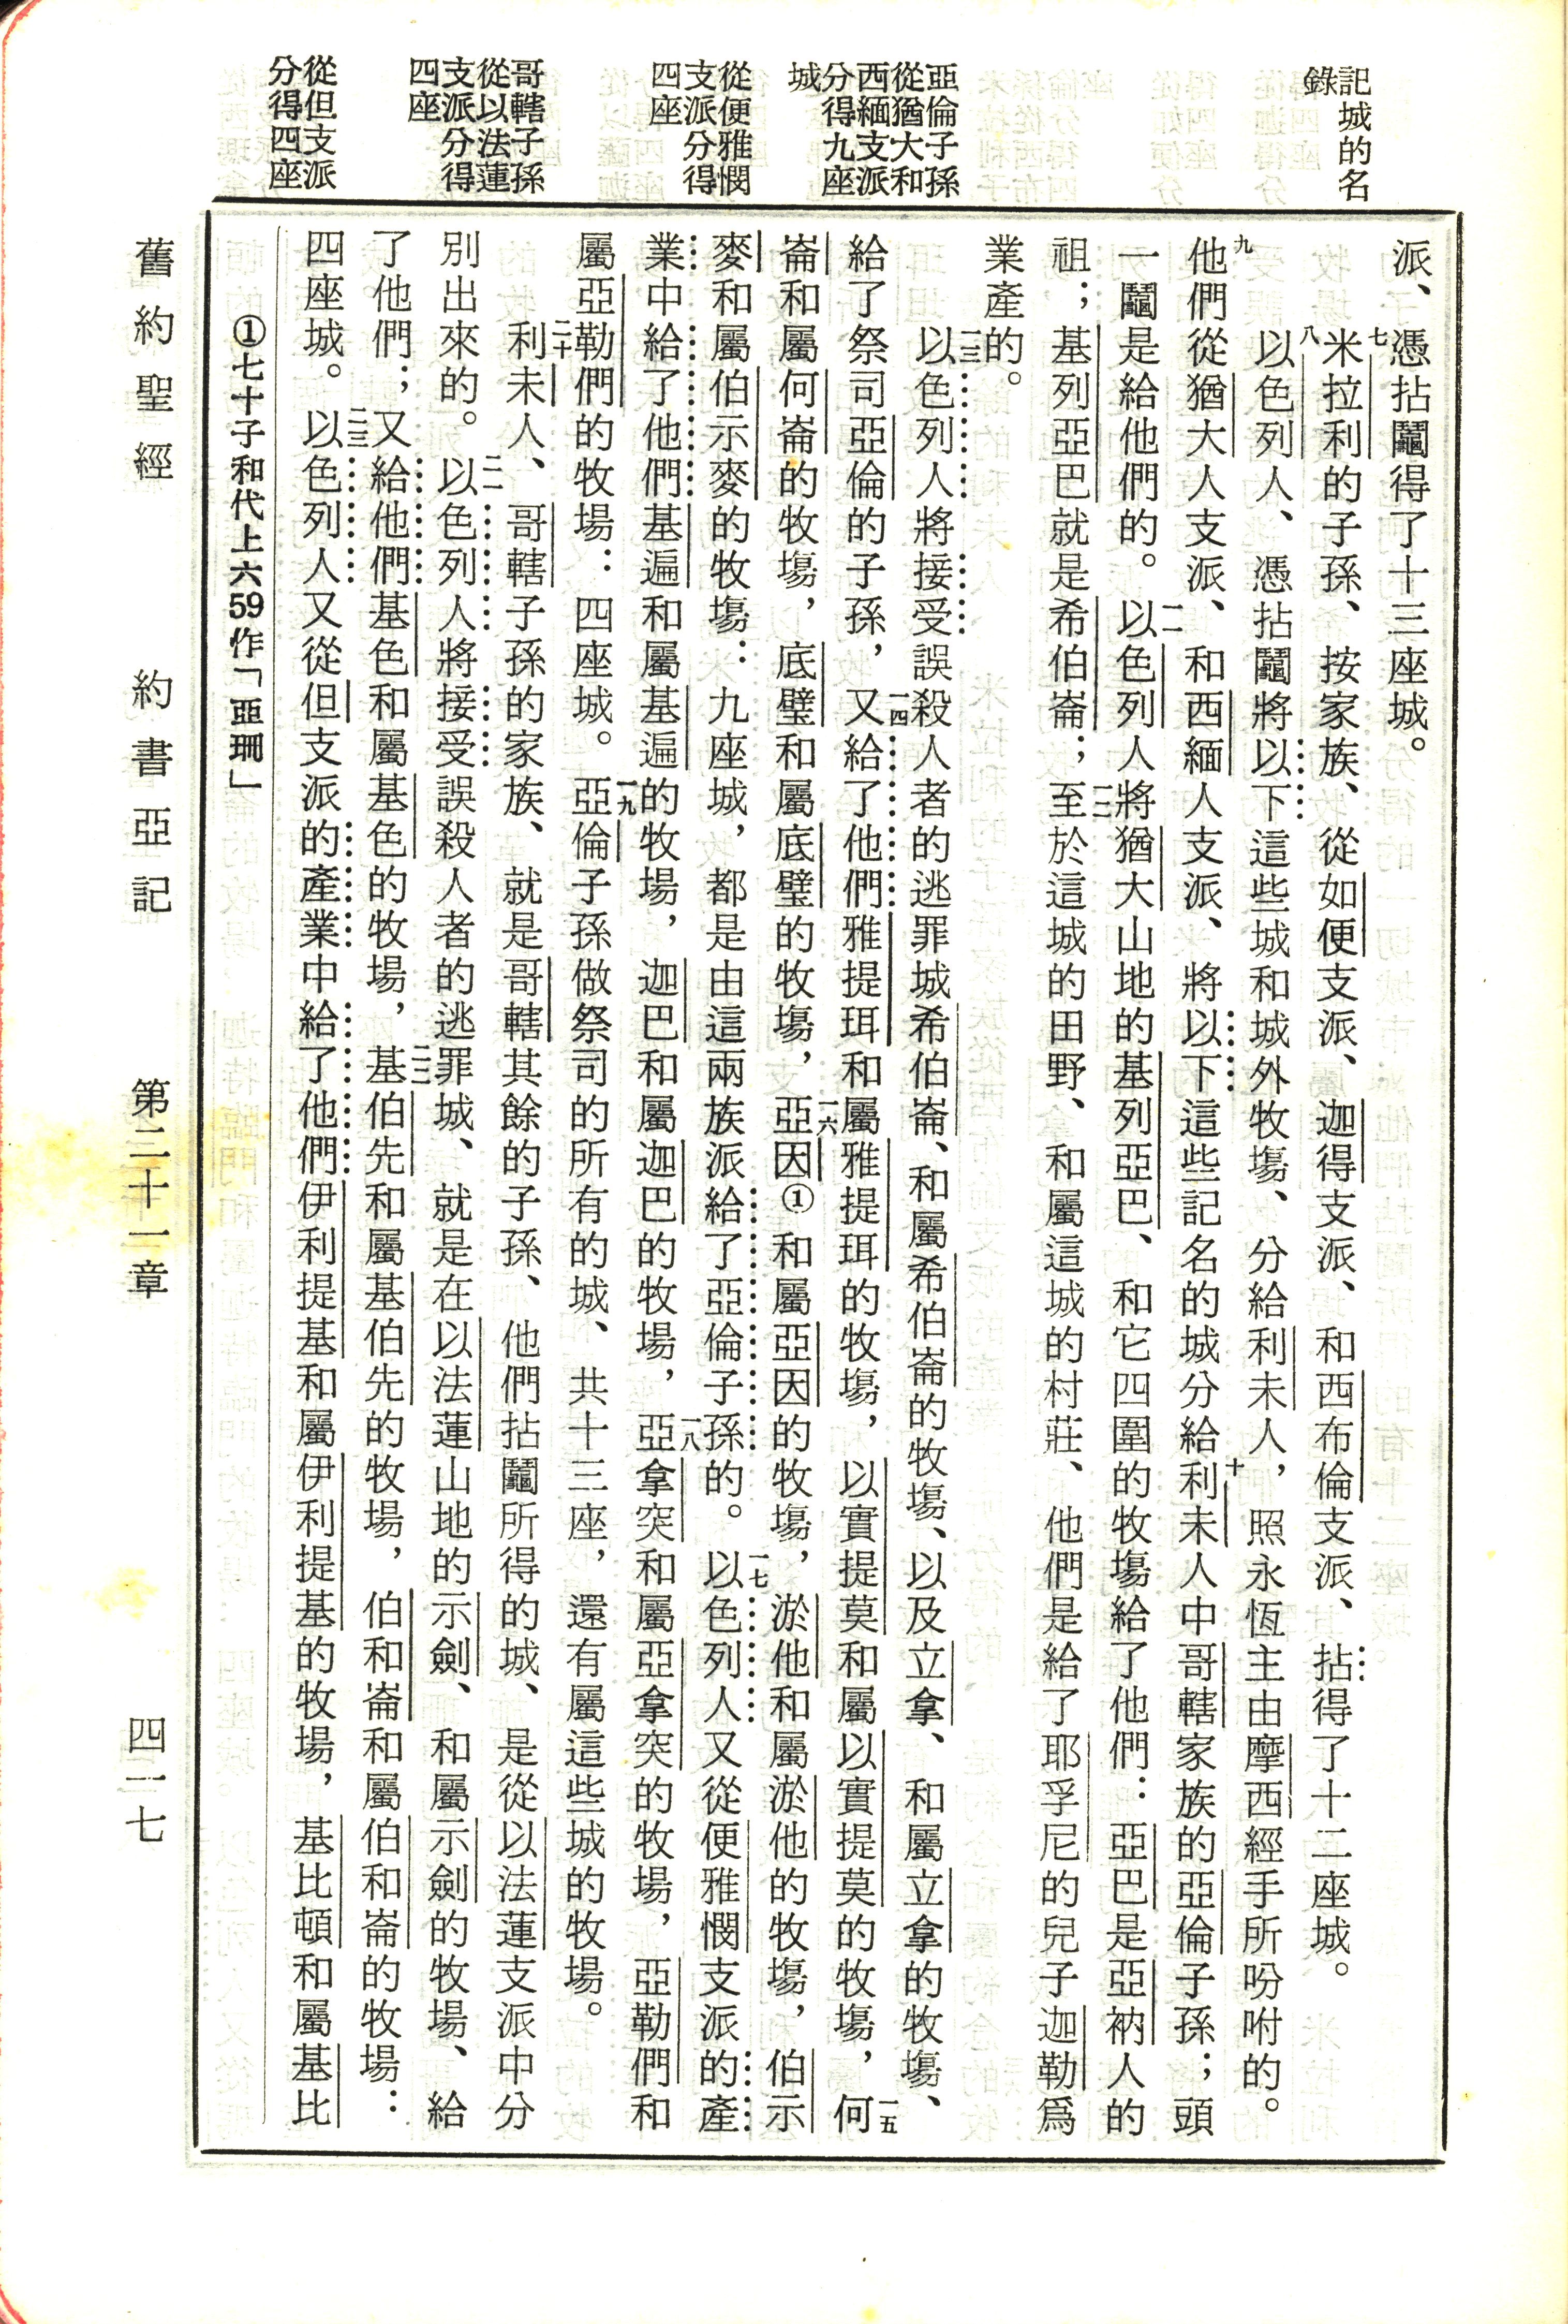 記城的名
錄
亞倫子孫
從猶大和
西緬支派
分得九座
城
從便雅憫
支派分得
四座
哥轄子孫
從以法蓮
支派分得
四座
從但支派
分得四座
派、憑拈鬮得了十三座城。
七米拉利的子孫、按家族、從如便支派、迦得支派、和西布倫支派、拈得了十二座城。
八以色列人、憑拈鬮將以下這些城和城外牧場、分給利未人，照永恆主由摩西經手所吩咐的。
九他們從猶大人支派、和西緬人支派、將以下這些記名的城分給十利未人中哥轄家族的亞倫子孫；頭
一鬮是給他們的。一一以色列人將猶大山地的基列亞巴、和它四圍的牧場給了他們：亞巴是亞衲人的
祖；基列亞巴就是希伯崙；一二至於這城的田野、和屬這城的村莊、他們是給了耶孚尼的兒子迦勒爲
業產的。
一三以色列人將接受誤殺人者的逃罪城希伯崙、和屬希伯崙的牧塲、以及立拿、和屬立拿的牧塲、
給了祭司亞倫的子孫，一四又給了他們雅提珥和屬雅提珥的牧塲，以實提莫和屬以實提莫的牧塲，一五何
崙和屬何崙的牧塲，底璧和屬底璧的牧塲，一六亞因①和屬亞因的牧塲，淤他和屬淤他的牧塲，伯示
麥和屬伯示麥的牧塲：九座城，都是由這兩族派給了亞倫子孫的。一七以色列人又從便雅憫支派的產
業中給了他們基遍和屬基遍的牧場，迦巴和屬迦巴的牧場，一八亞拿突和屬亞拿突的牧場，亞勒們和
屬亞勒們的牧場：四座城。一九亞倫子孫做祭司的所有的城、共十三座，還有屬這些城的牧場。
二十利未人、哥轄子孫的家族、就是哥轄其餘的子孫、他們拈鬮所得的城、是從以法蓮支派中分
別出來的。二一以色列人將接受誤殺人者的逃罪城、就是在以法蓮山地的示劍、和屬示劍的牧場、給
了他們；又給他們基色和屬基色的牧場，二二基伯先和屬基伯先的牧場，伯和崙和屬伯和崙的牧場：
四座城。二三以色列人又從但支派的產業中給了他們伊利提基和屬伊利提基的牧場，基比頓和屬基比
①七十子和代上六59作「亞珊」
舊約聖經　約書亞記　第二十一章　四一七